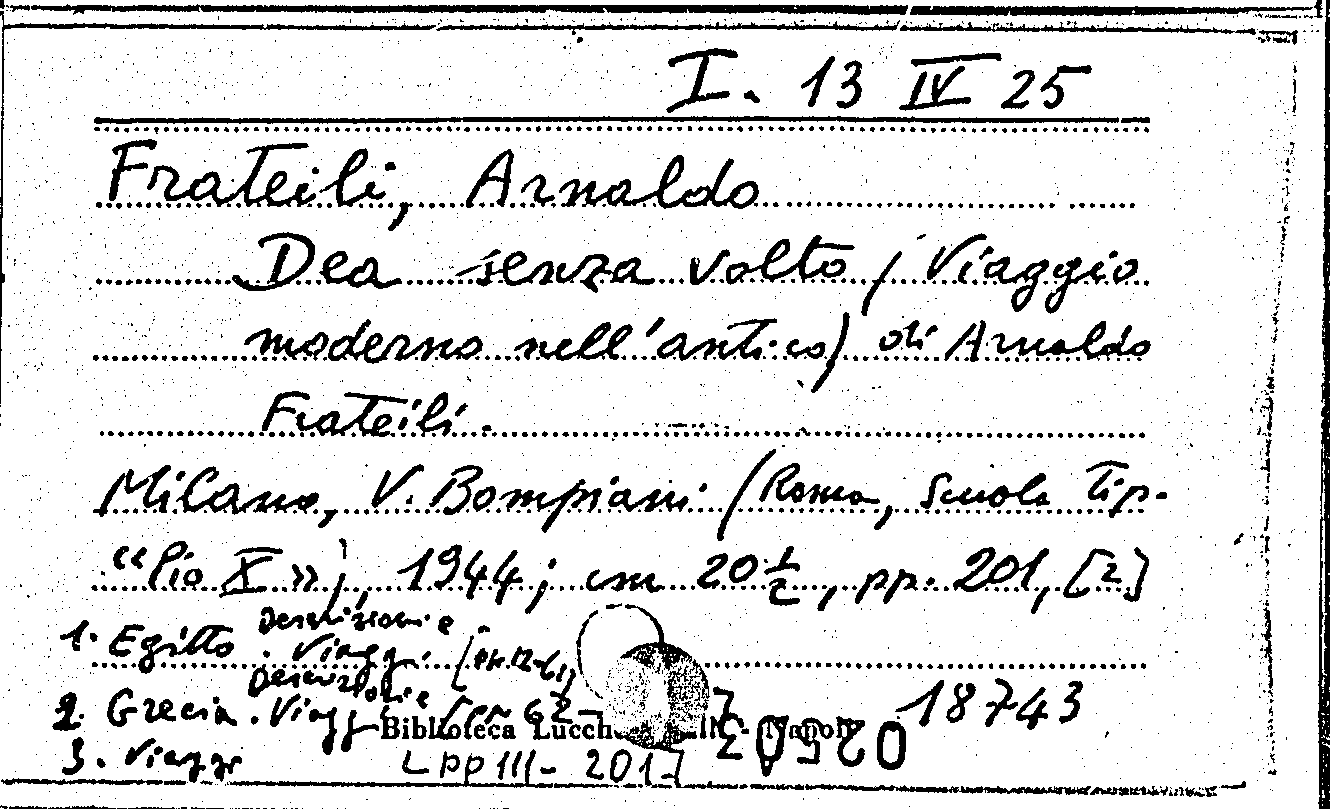 I. 13 IV 25
Frateili, Arnaldo
Dea senza volto (Viaggio
moderno nell'antico) di Arnaldo
Frateili.
Milano, V. Bompiani (Roma, Scuola Tip.
“Pio X»), 1944; cm 20 1/2, pp. 201, [2]
1. Egitto. Descrizioni e Viaggi. [pp. 12-61]
2. Grecia. Descrizioni e Viaggi
18743
Biblioteca Lucch - Napoli
3. Viaggi
LPP III - 201]